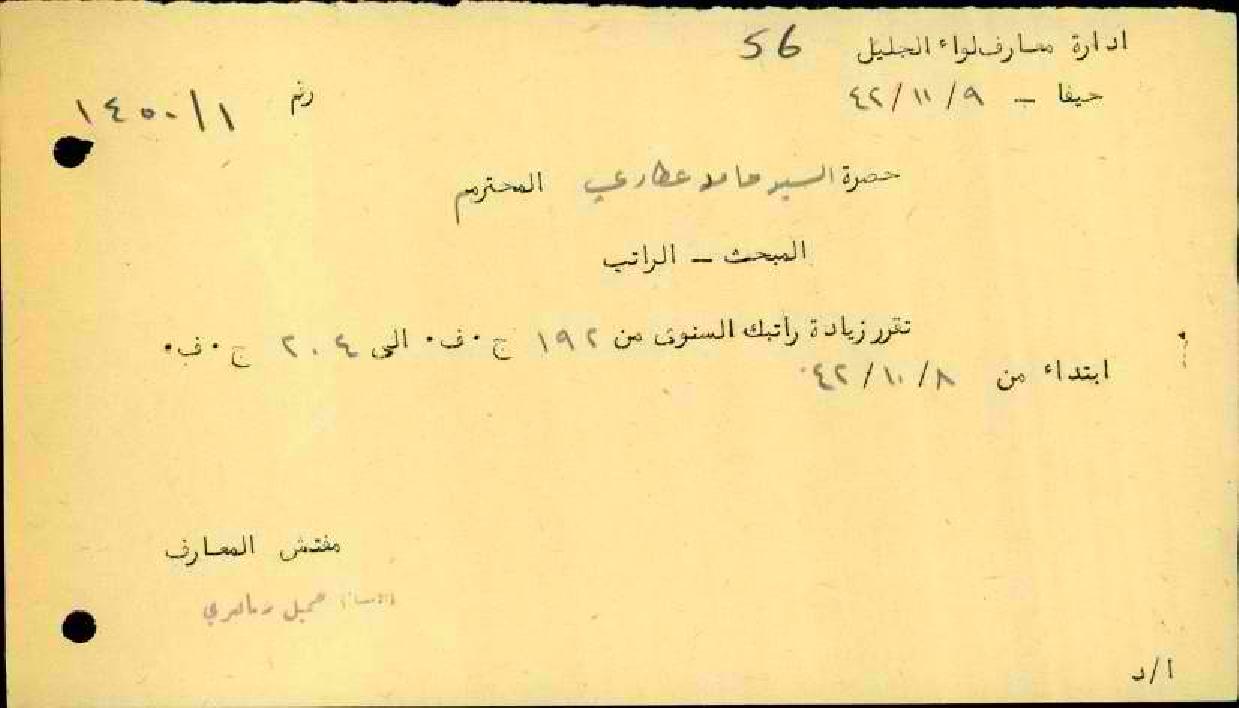 ادارة معارف لواء الجليل 56
حيفا - ٤٢/١١/٩
رقم ١٤٥٠/١
حضرة السيد حامد عطاري المحترم
المبحث - الراتب
تقرر زيادة راتبك السنوى من ١٩٢ ج٠ف٠ الى ٢٠٤ ج٠ف٠
ابتداء من ٤٢/١٠/٨
مفتش المعارف
جميل
ا/د